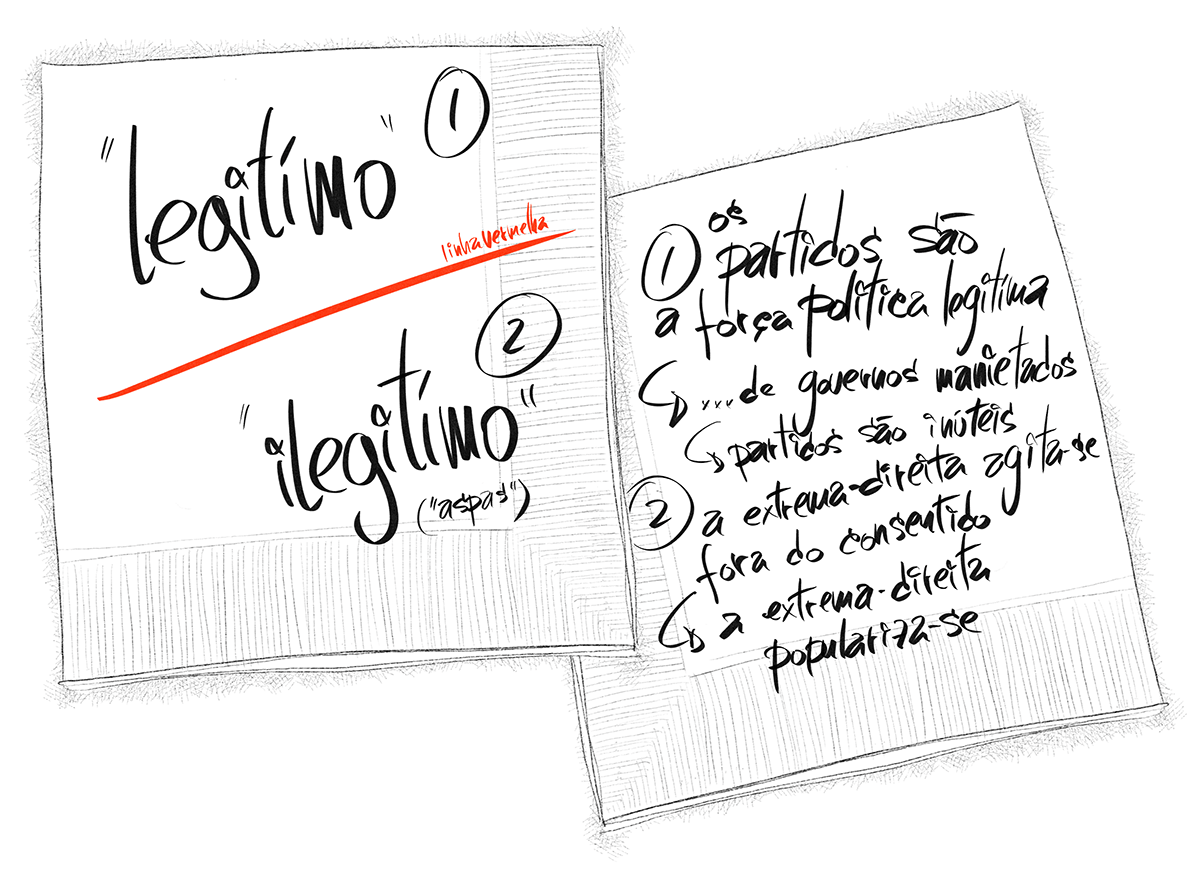 "legítimo" 1
linha vermelha
2
"ilegítimo"
("aspas")
1 os
partidos são
a força política legítima
↳ ... de governos manietados
↳ partidos são inúteis
2 a extrema-direita agita-se
fora do consentido
↳ a extrema-direita
populariza-se